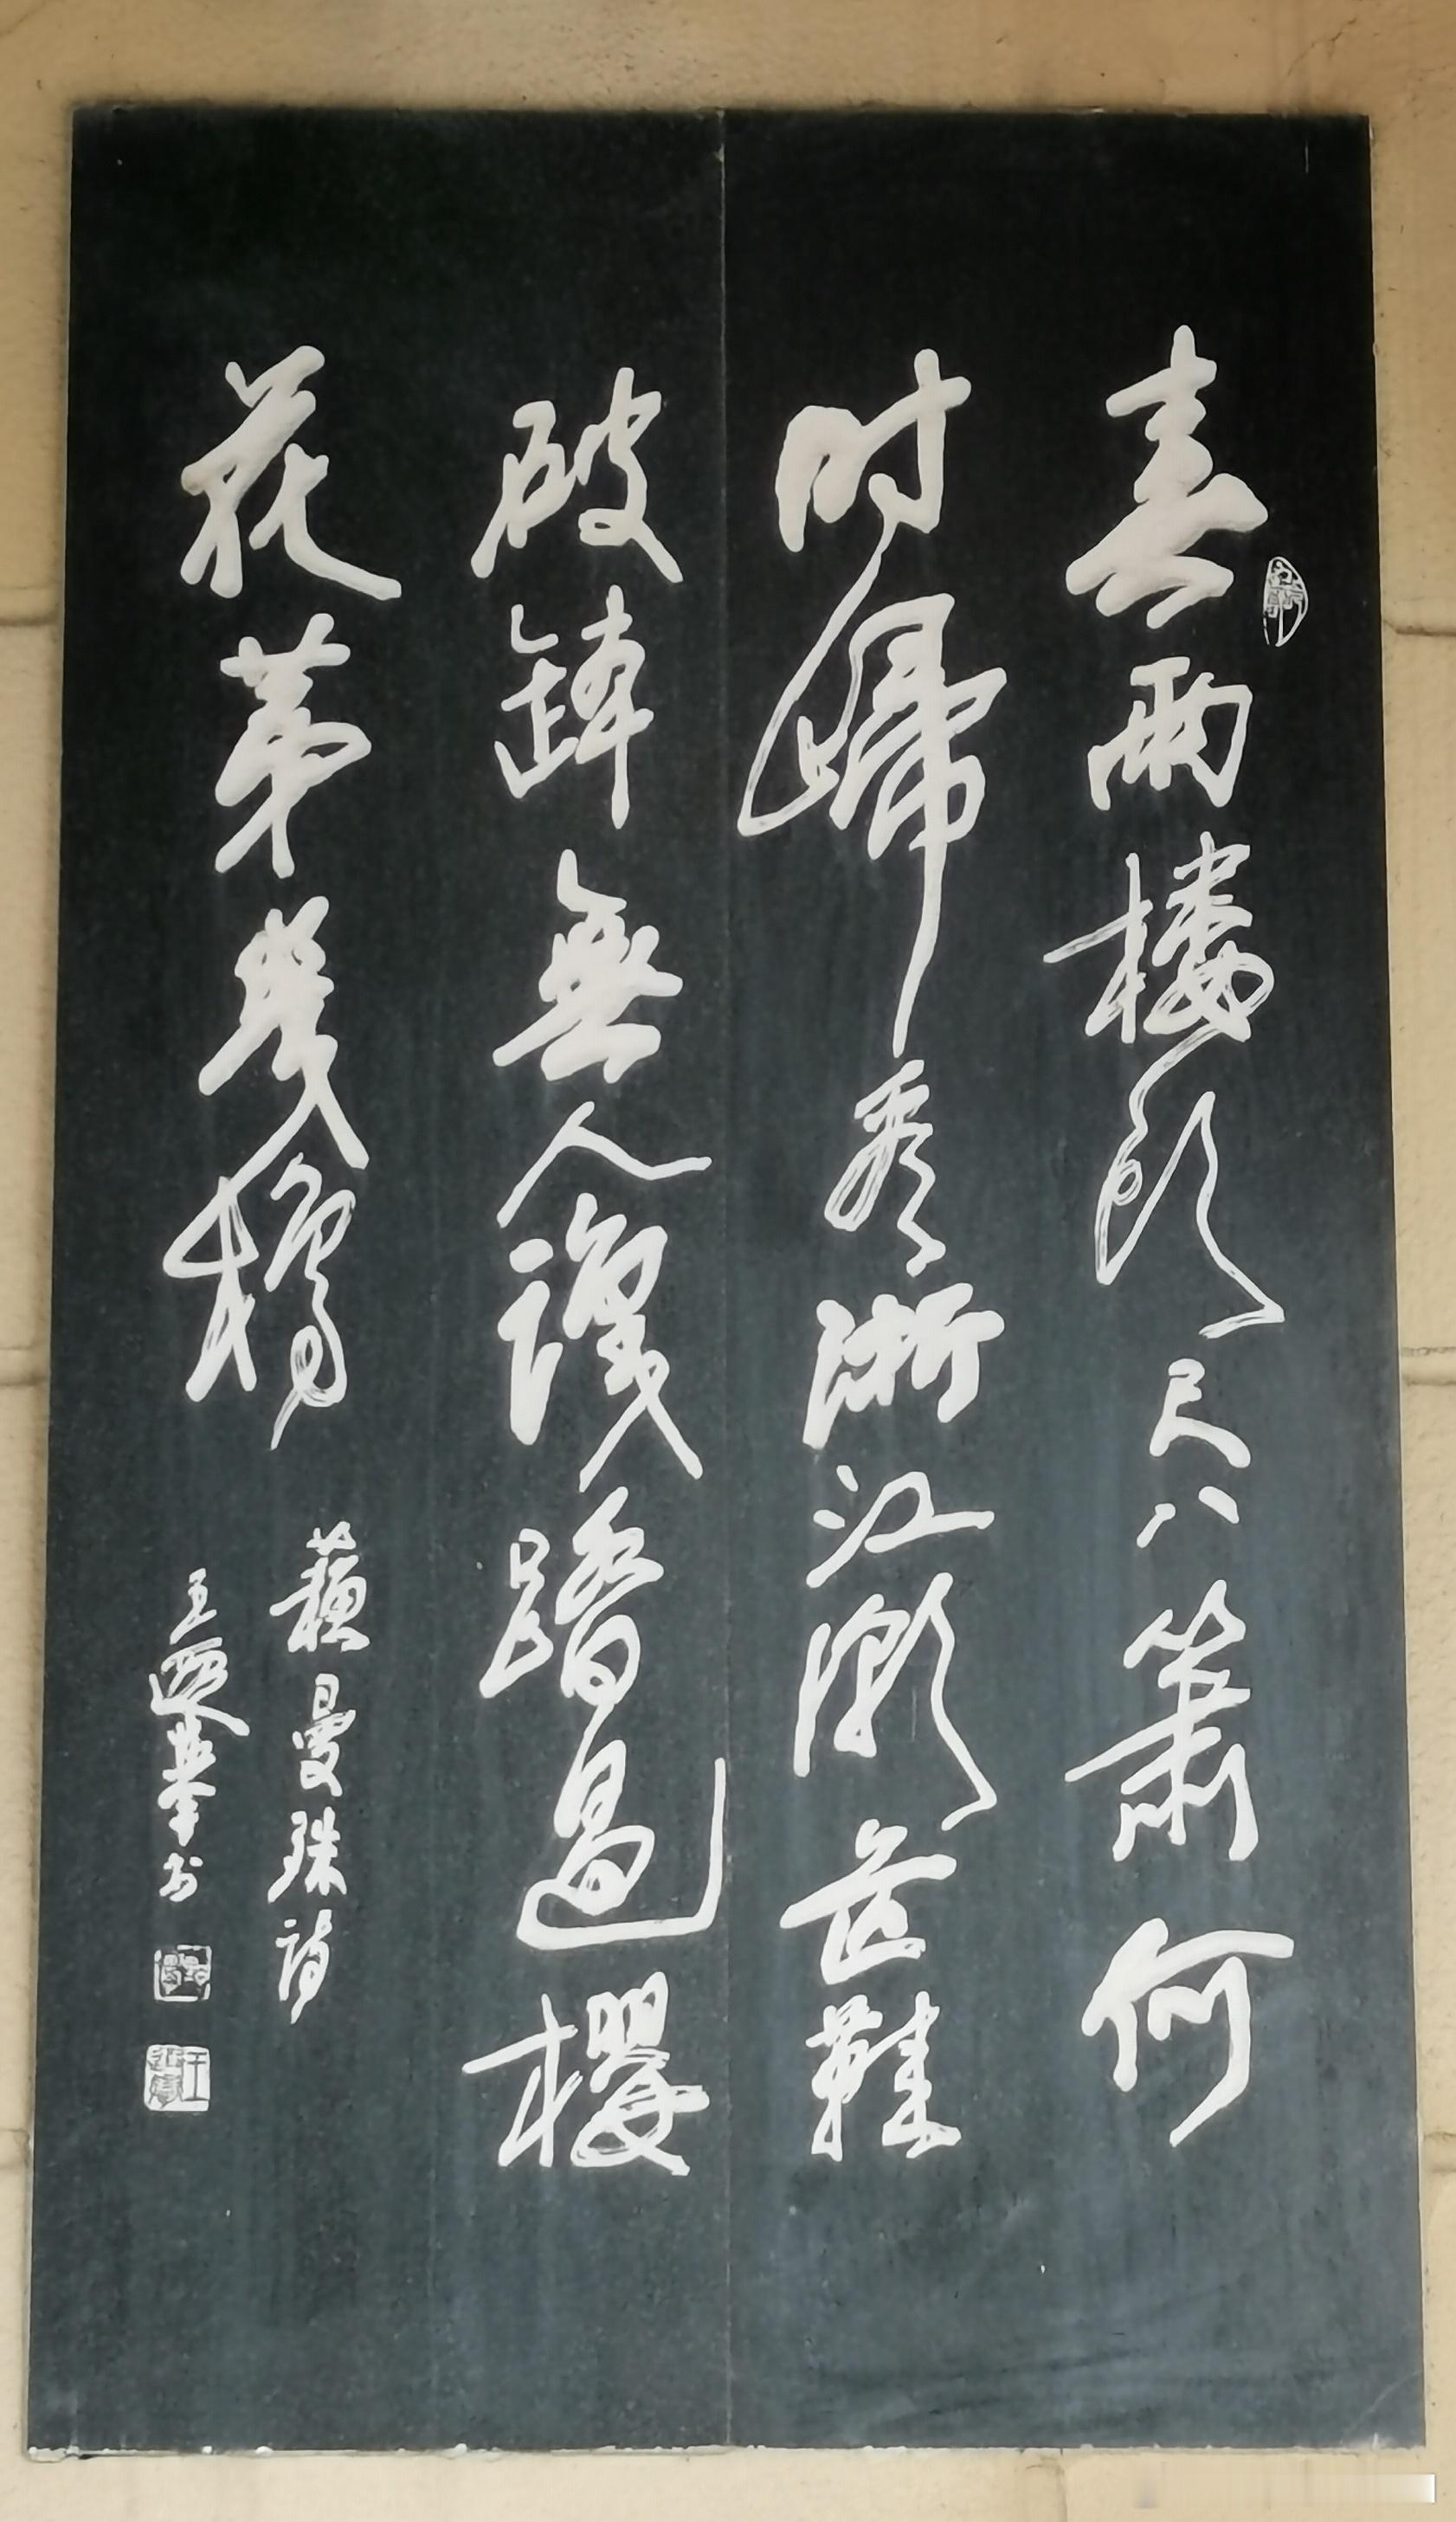 春雨樓頭尺八簫何
时歸看浙江潮芒鞋
破鉢無人識踏過櫻
花第幾橋
蘇曼珠詩
王遐舉书